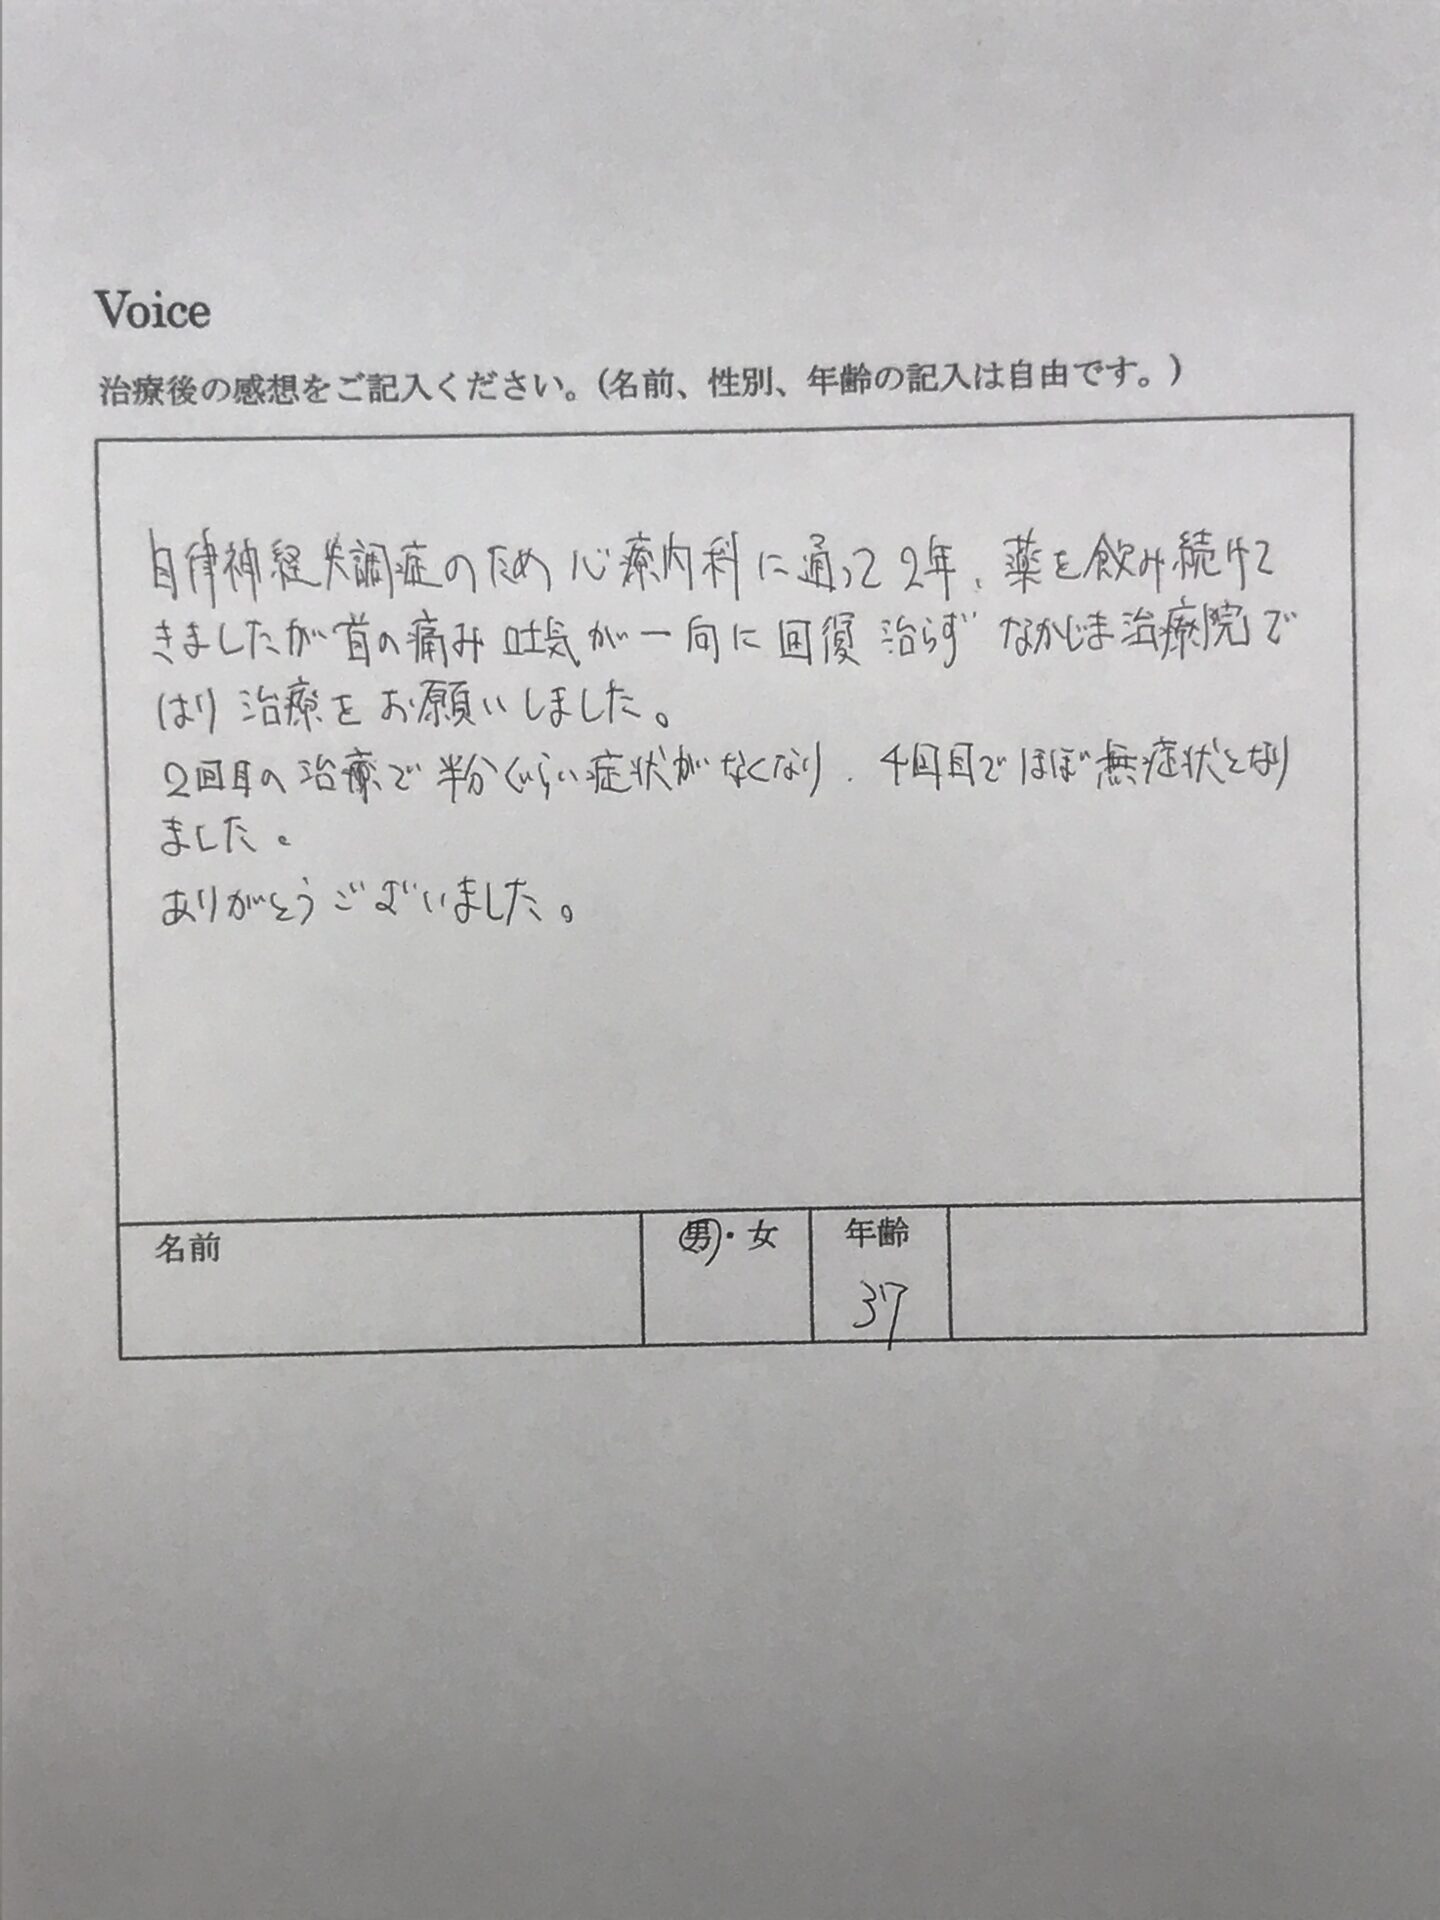 Voice
治療後の感想をご記入ください。(名前、性別、年齢の記入は自由です。)
自律神経失調症のため心療内科に通って2年、薬を飲み続けて
きましたが首の痛み吐気が一向に回復治らずなかじま治療院で
はり治療をお願いしました。
2回目の治療で半分ぐらい症状がなくなり、4回目でほぼ無症状となり
ました。
ありがとうございました。
名前 男・女 年齢
37